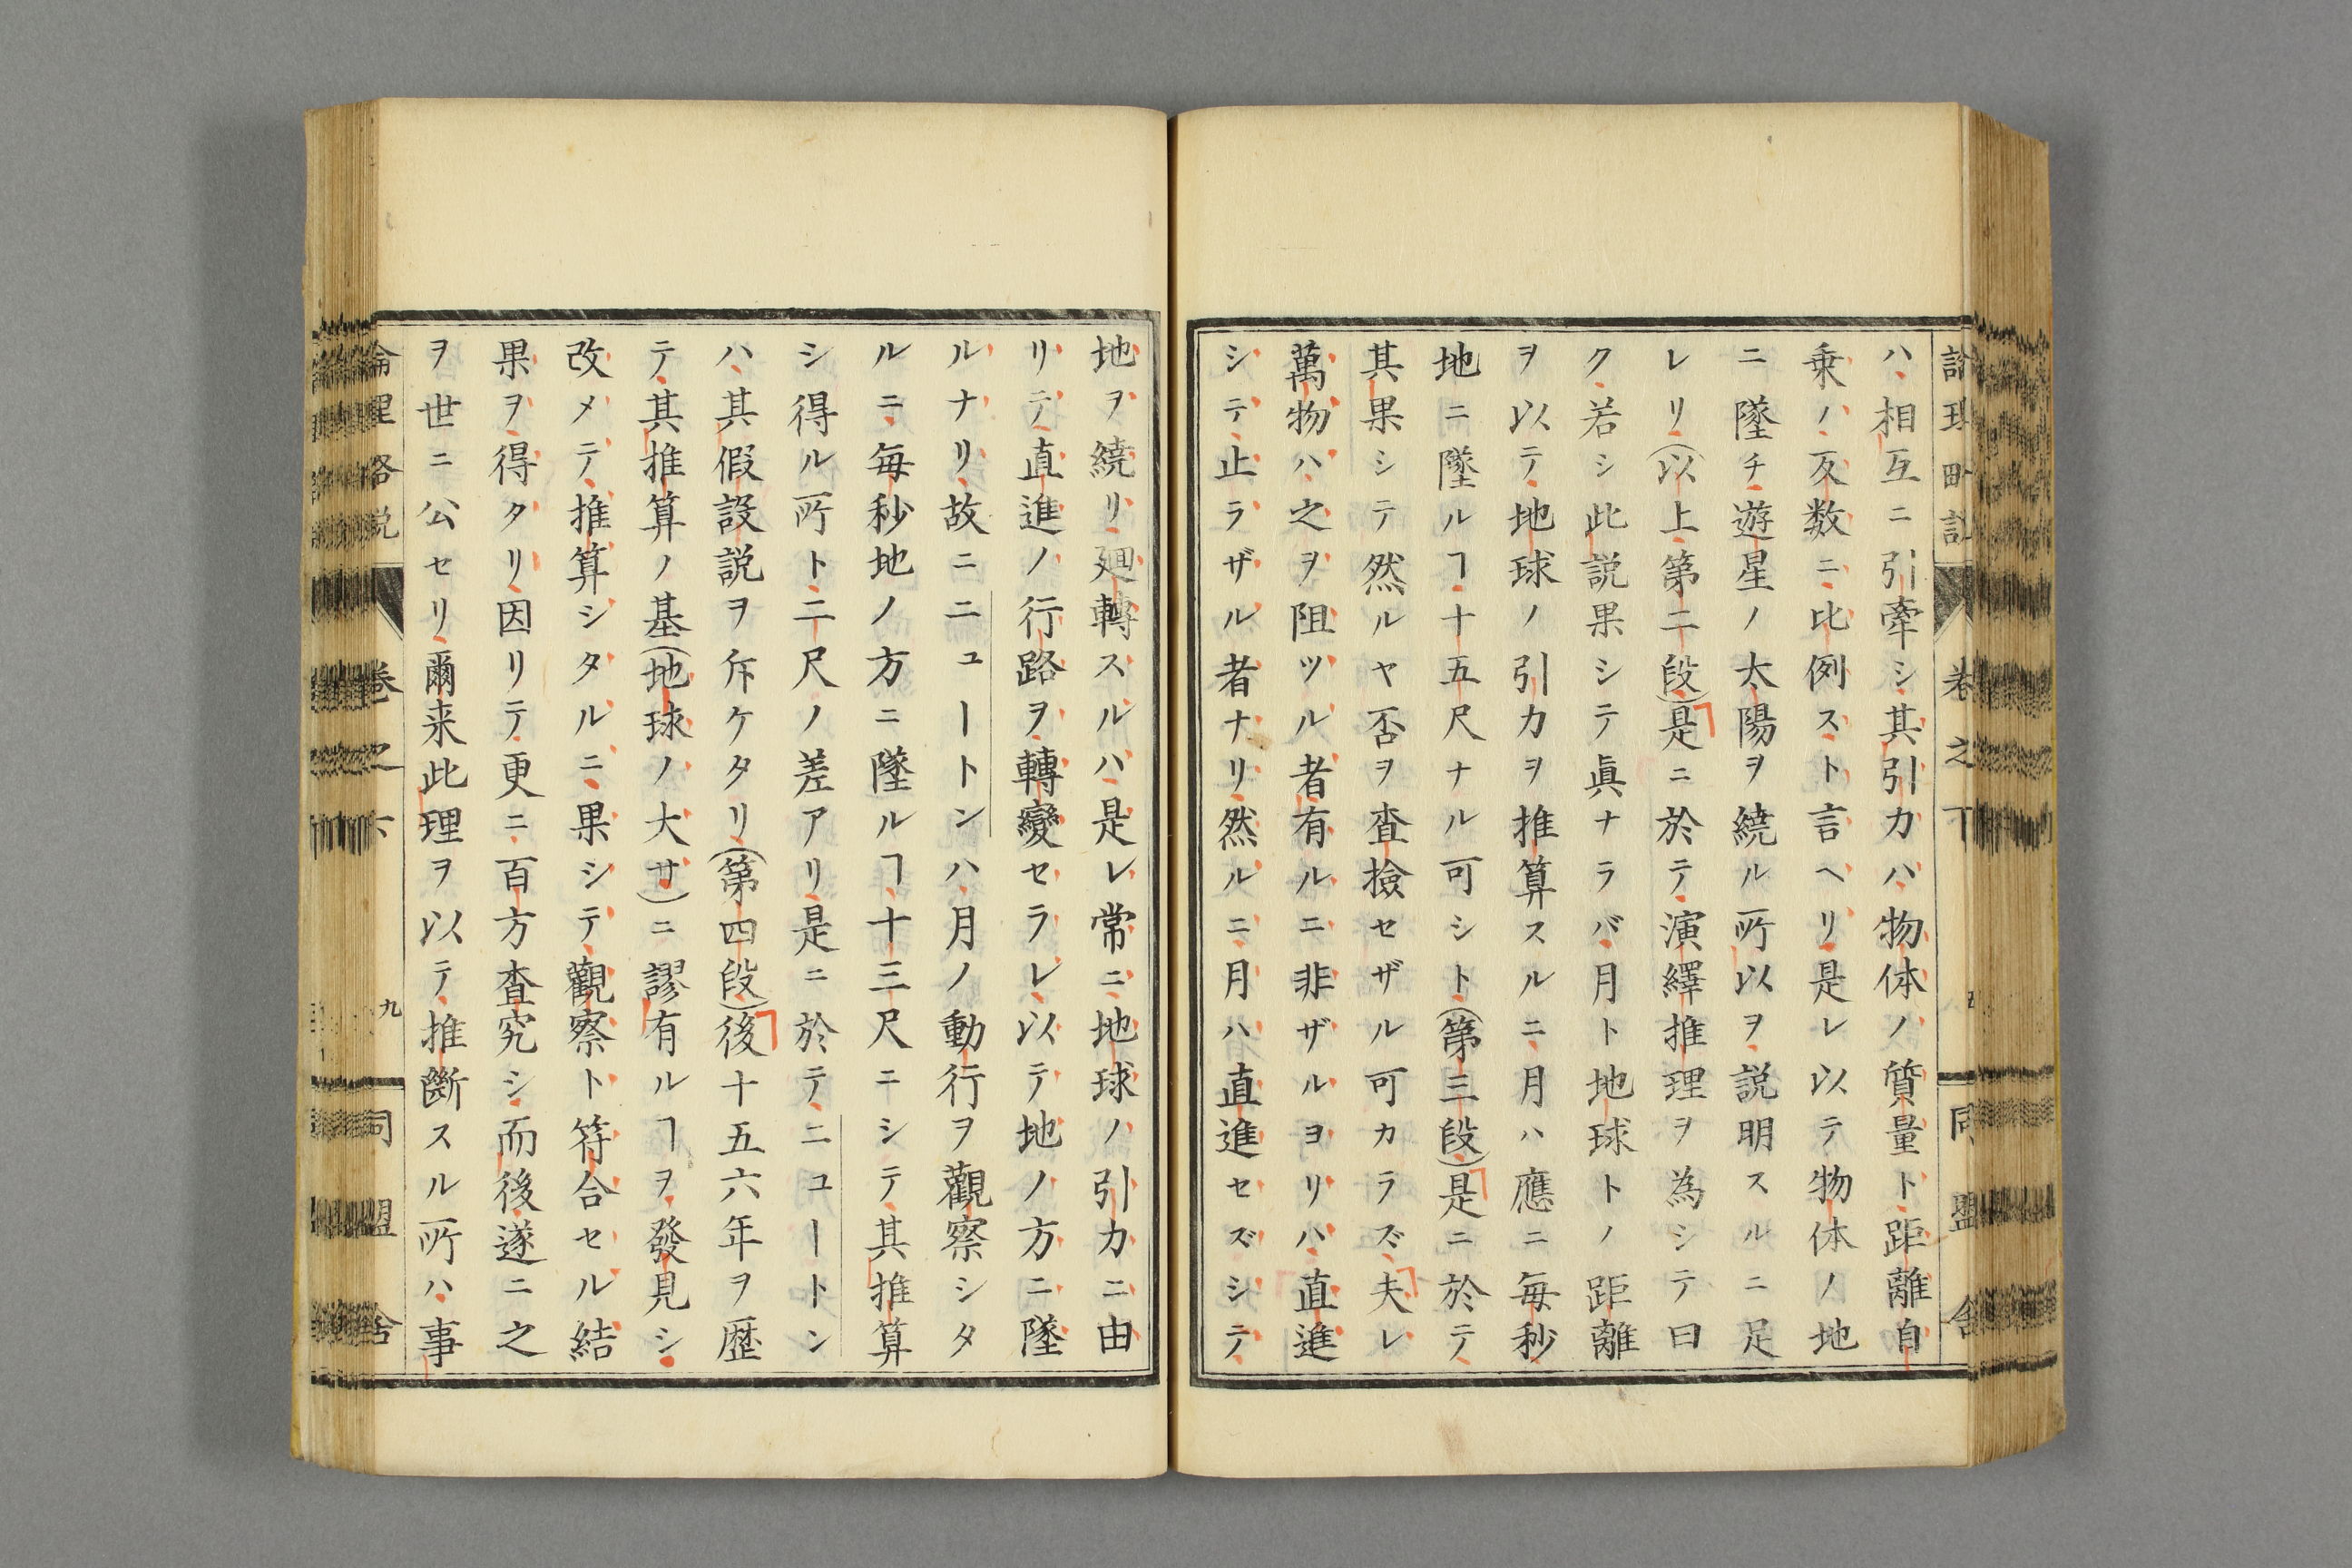 ハ相互ニ引牽シ其引力ハ物体ノ質量ト距離自
乗ノ反数ニ比例スト言ヘリ是レ以テ物体ノ地
ニ墜チ遊星ノ太陽ヲ繞ル所以ヲ説明スルニ足
レリ(以上第二段)是ニ於テ演繹推理ヲ為シテ曰
ク若シ此説果シテ眞ナラバ月ト地球トノ距離
ヲ以テ地球ノ引力ヲ推算スルニ月ハ應ニ毎秒
地ニ墜ルヿ十五尺ナル可シト(第三段)是ニ於テ
其果シテ然ルヤ否ヲ査撿セザル可カラズ夫レ
萬物ハ之ヲ阻ツル者有ルニ非ザルヨリハ直進
シテ止ラザル者ナリ然ルニ月ハ直進セズシテ
地ヲ繞リ廻轉スルハ是レ常ニ地球ノ引力ニ由
リテ直進ノ行路ヲ轉變セラレ以テ地ノ方ニ墜
ルナリ故ニニュートンハ月ノ動行ヲ觀察シタ
ルニ毎秒地ノ方ニ墜ルヿ十三尺ニシテ其推算
シ得ル所ト二尺ノ差アリ是ニ於テニュートン
ハ其假設説ヲ斥ケタリ(第四段)後十五六年ヲ歴
テ其推算ノ基(地球ノ大サ)ニ謬有ルヿヲ發見シ
改メテ推算シタルニ果シテ觀察ト符合セル結
果ヲ得タリ因リテ更ニ百方査究シ而後遂ニ之
ヲ世ニ公セリ爾来此理ヲ以テ推斷スル所ハ事
論理略説
卷之下
九
同盟舍